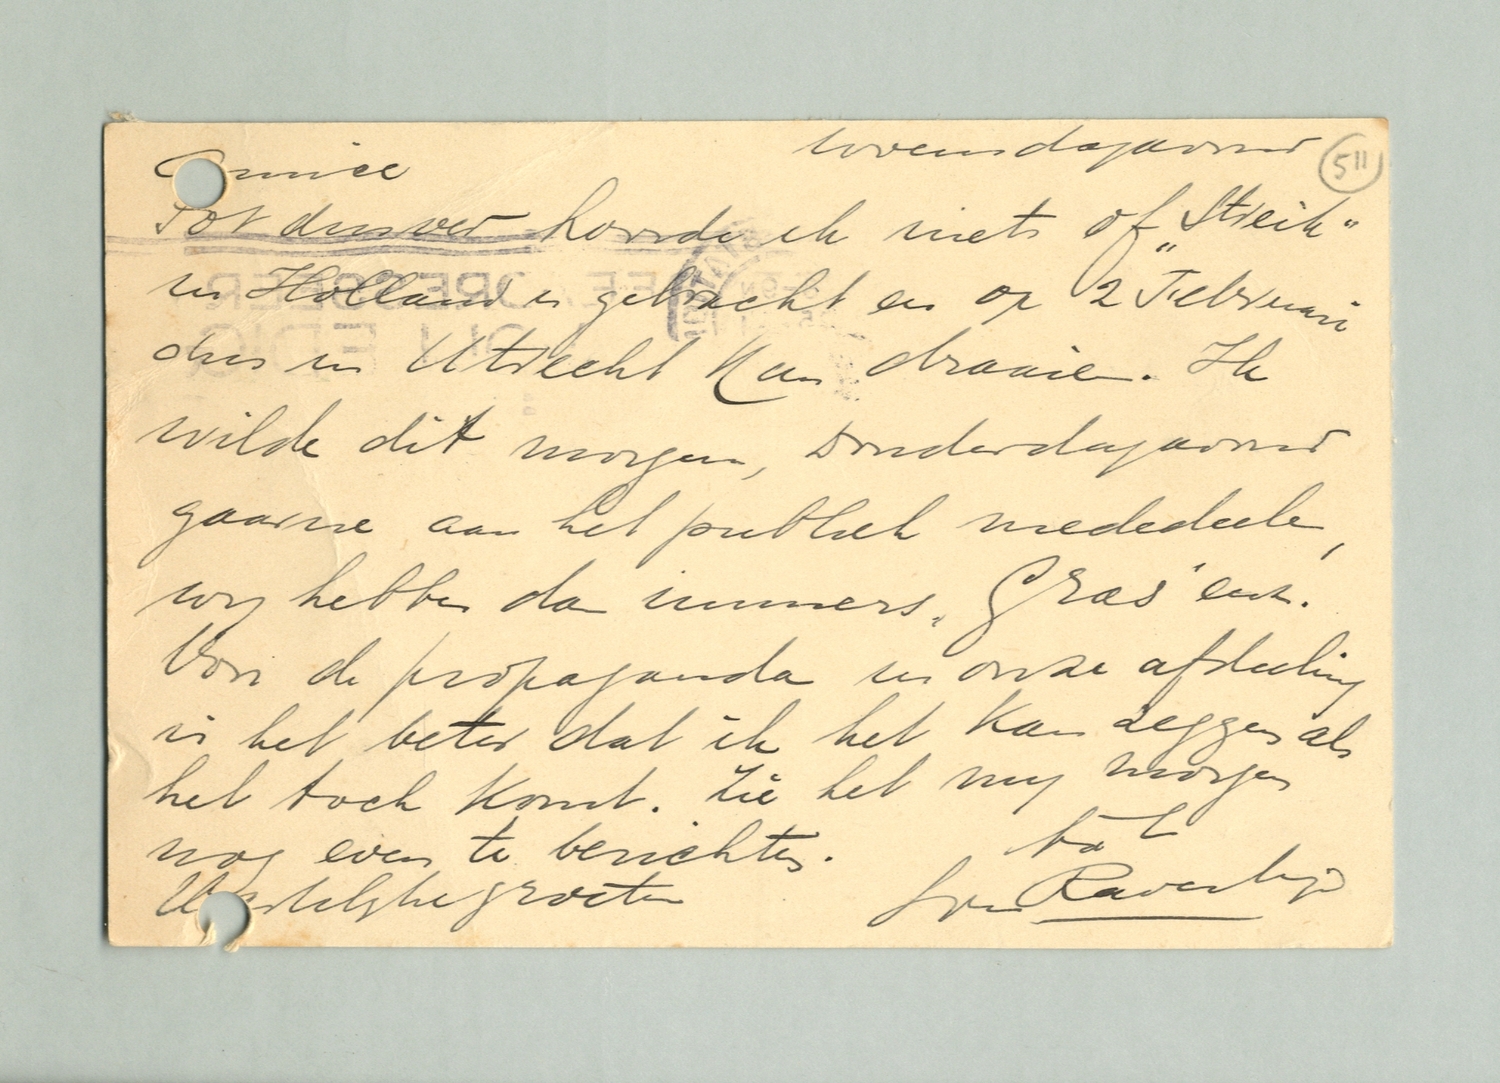 woensdagavond
5"
Amice
Tot dusver hoorde ik niets of „Streik"
in Holland is gebracht en op 2 Februari
dus in Utrecht kan draaien. Ik
wilde dit morgen, donderdagavond
gaarne aan het publiek mededeelen,
wij hebben dan immers „Gras" enz.
Voor de propaganda in onze afdeeling
is het beter dat ik het kan zeggen als
het toch komt. Zie het mij morgen
nog even te berichten.
tot
Hartelijke groeten
v Ravesteijn